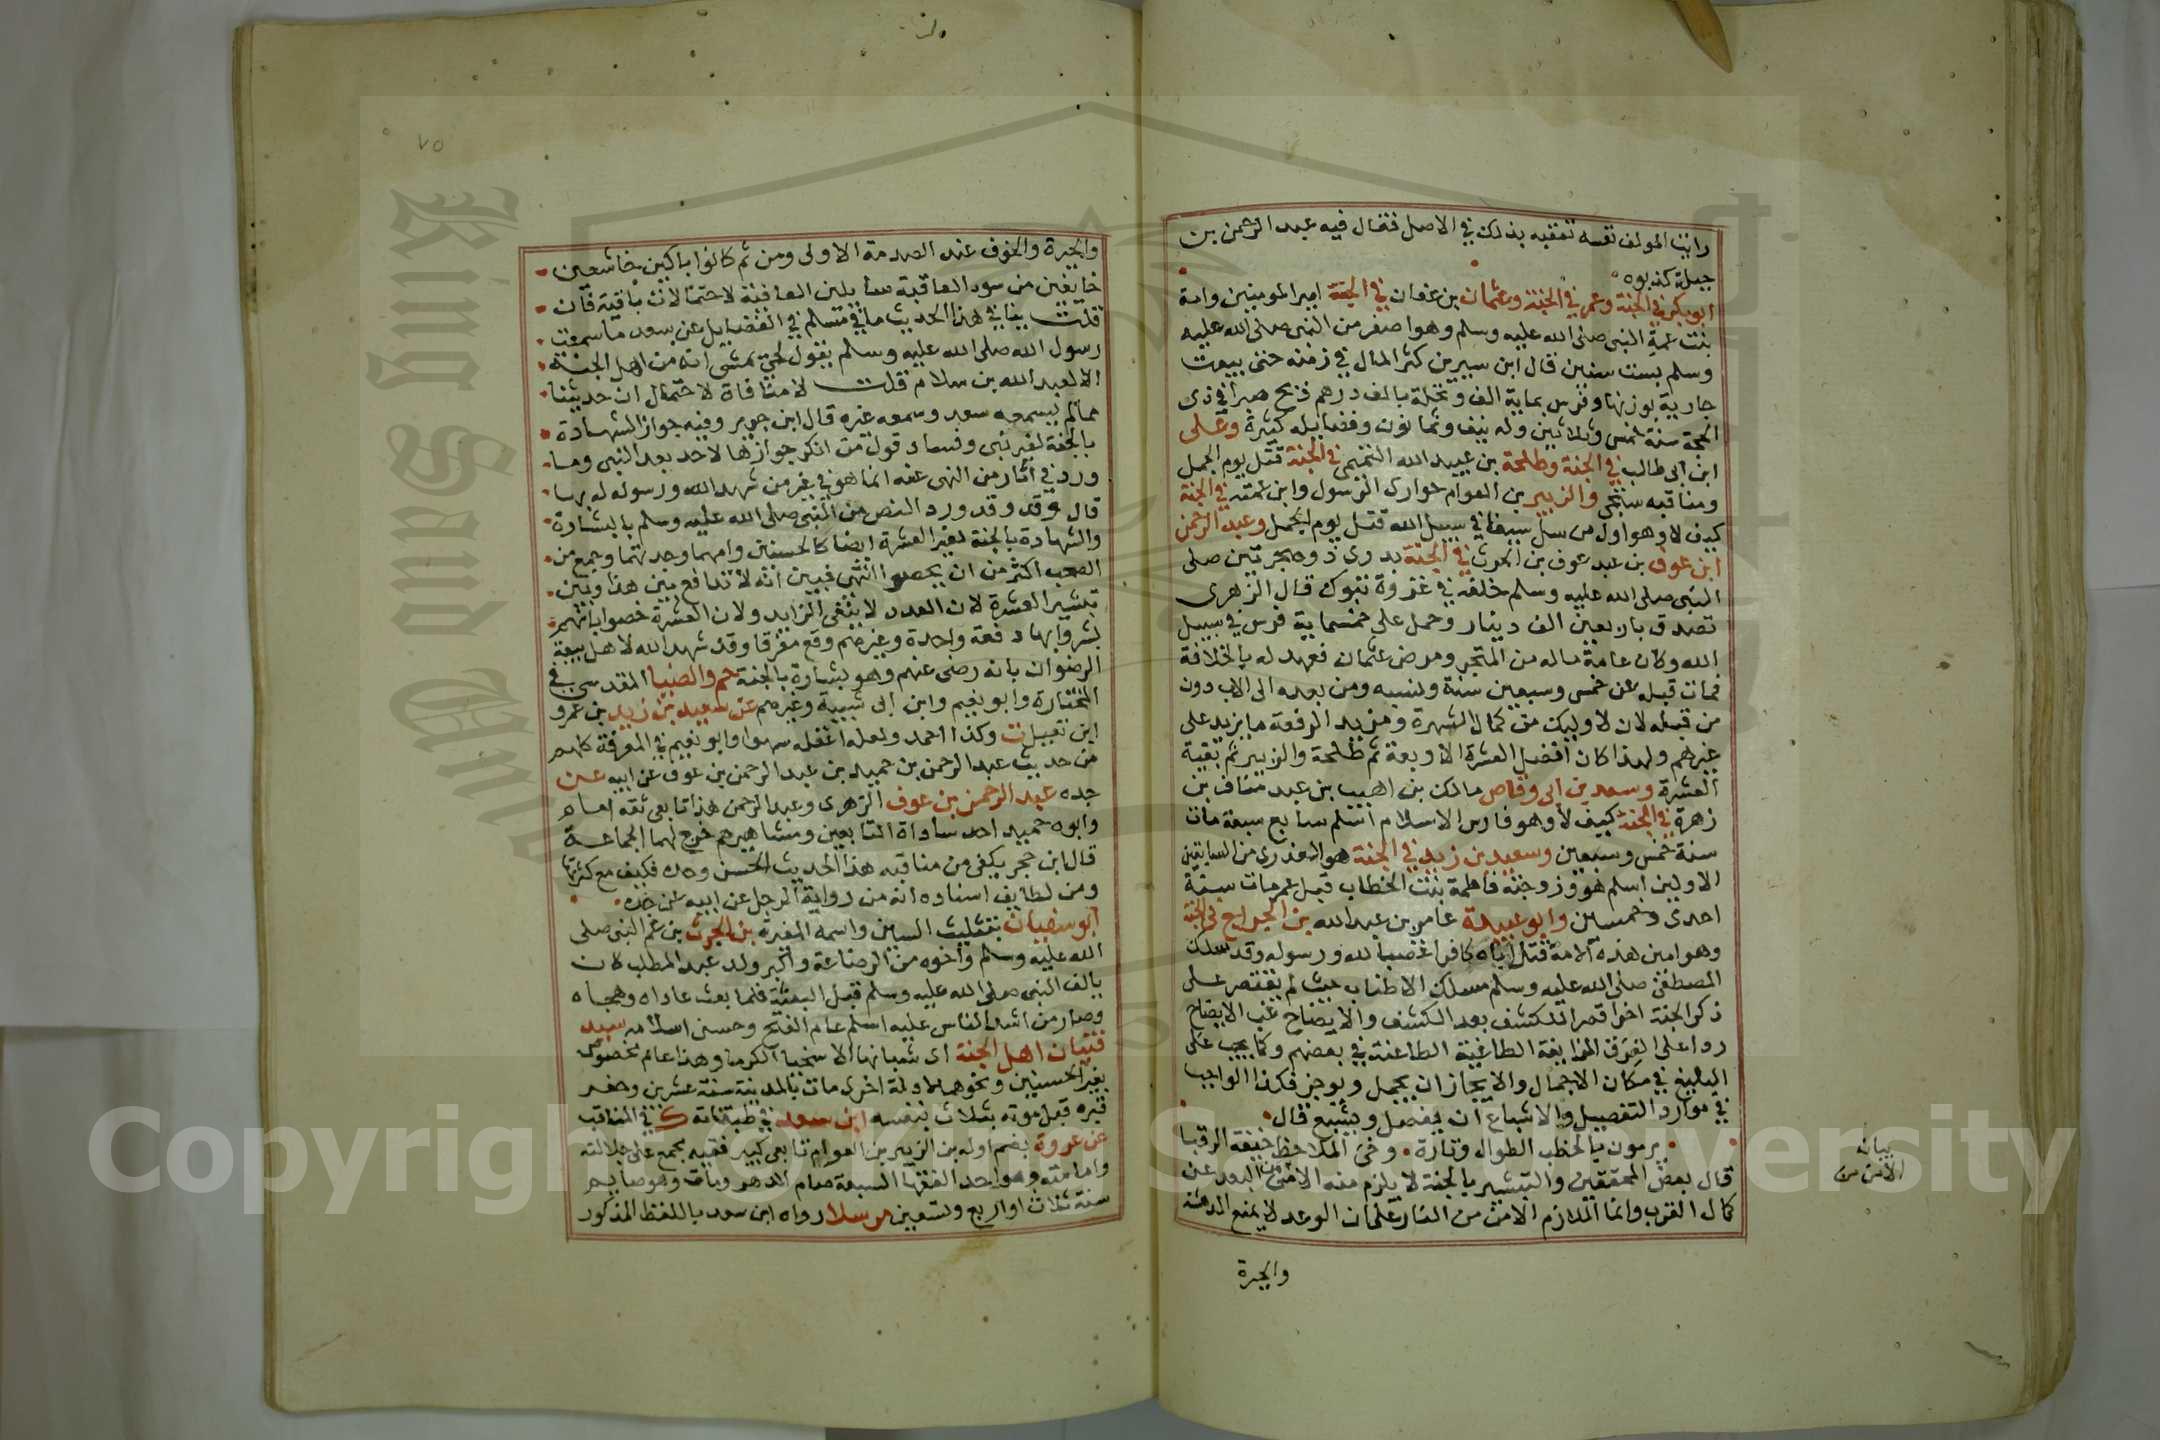 رايت المولف نفسه تعقبه بذلك في الاصل فقال فيه عبد الرحمن بن
جبلة كذبوه
ابو بكر في الجنة وعمر في الجنة وعثمان بن عفان في الجنة امير المومنين وامه
بنت عمة النبي صلى الله عليه وسلم وهو اصغر من النبي صلى الله عليه
وسلم بست سنين قال ابن سيرين كثر المال في زمنه حتى بيعت
جارية بوزنها وفرس بماية الف ونخلة بالف درهم ذبح صبرا في ذي
الحجة سنة خمس وثلاثين وله نيف وثمانون وفضايله كثيرة وعلى
ابن ابى طالب في الجنة وطلحة بن عبيد الله التيمى في الجنة قتل يوم الجمل
ومناقبه ستجى والزبير بن العوام حوارى الرسول وابن عمته في الجنة
كيف لا وهو اول من سل سيفا في سبيل الله قتل يوم الجمل وعبد الرحمن
ابن عوف بن عبد عوف بن الحرث في الجنة بدرى ذو هجرتين صلى
النبي صلى الله عليه وسلم خلفه في غزوة تبوك قال الزهرى
تصدق باربعين الف دينار وحمل على خمسماية فرس في سبيل
الله وكان عامة ماله من المتجر ومرض عثمان فعهد له بالخلافة
فمات قبله عن خمس وسبعين سنة ونسبه ومن بعده الى الاب دون
من قبله لان لاوليك من كمال الشهرة ومزيد الرفعة ما يزيد على
غيرهم ولهذا كان افضل العشرة الاربعة ثم طلحة والزبير ثم بقية
العشرة وسعد بن ابي وقاص مالك بن اهيب بن عبد مناف بن
زهرة في الجنة كيف لا وهو فارس الاسلام اسلم سابع سبعة مات
سنة خمس وسبعين وسعيد بن زيد في الجنة هو العدوى من السابقين
الاولين اسلم هو وزوجته فاطمة بنت الخطاب قبل عمر مات سنة
احدى وخمسين وابو عبيدة عامر بن عبد الله بن الجراح في الجنة
وهو امين هذه الامة قتل اباه كافرا غضبا لله ورسوله وقد سلك
المصطفى صلى الله عليه وسلم مسلك الاطناب حيث لم يقتصر على
ذكر الجنة اخرا قصرا للكشف بعد الكشف والايضاح غب الايضاح
ردا على الفرق الزايغة الطاغية الطاعنة في بعضهم وكما يجب على
البليغ في مكان الاجمال والايجاز ان يجمل ويوجز فكذا الواجب
في موارد التفصيل والاشباع ان يفصل ويشبع قال
يرمون بالخطب الطوال وتارة وحى الملاحظ خيفة الرقبا
قال بعض المحققين والتبشير بالجنة لا يلزم منه الامن من البعد عن
كمال القرب وانما اللازم الامن من النار على ان الوعد لا يمنع الدهشة
بيان
الامن من
والحيرة
٧٥
والحيرة والخوف عند الصدمة الاولى ومن ثم كانوا باكين خاشعين
خايفين من سوء العاقبة سايلين العافية لاحتمالات باقية فان
قلت ينافي هذا الحديث ما في مسلم في الفضايل عن سعد ما سمعت
رسول الله صلى الله عليه وسلم يقول لحي يمشى انه من اهل الجنة
الا لعبد الله بن سلام قلت لا منافاة لاحتمال ان حديثنا
مما لم يسمعه سعد وسمعه غيره قال ابن جرير وفيه جواز الشهادة
بالجنة لغير نبي وفساد قول من انكر جوازها لاحد بعد النبي وما
ورد في آثار من النهى عنه انما هو في غير من شهد الله ورسوله له بها
قال وقد ورد النص من النبي صلى الله عليه وسلم بالبشارة
والشهادة بالجنة لغير العشرة ايضا كالحسنين وامهما وجدتهما وجمع من
الصحب اكثر من ان يحصوا انتهى فبين انه لا تدافع بين هذا وبين
تبشير العشرة لان العدد لا ينفى الزايد ولان العشرة خصوا بانهم
بشروا بها دفعة واحدة وغيرهم وقع مفرقا وقد شهد الله لاهل بيعة
الرضوان بانه رضى عنهم وهو بشارة بالجنة حم والضيا المقدسى في
المختارة وابو نعيم وابن ابى شيبة وغيرهم عن سعيد بن زيد بن عمرو
ابن نفيل ت وكذا احمد ولعله اغفله سهوا وابو نعيم في المعرفة كلهم
من حديث عبد الرحمن بن حميد بن عبد الرحمن بن عوف عن ابيه عن
جده عبد الرحمن بن عوف الزهرى وعبد الرحمن هذا تابعى ثقة امام
وابوه حميد احد سادات التابعين ومشاهيرهم خرج لهما الجماعة
قال ابن حجر يكفى من مناقبه هذا الحديث الحسن وحده فكيف مع كثرتها
ومن لطايف اسناده انه من رواية الرجل عن ابيه عن جده
ابو سفيان بتثليث السين واسمه المغيرة بن الحرث بن عم النبي صلى
الله عليه وسلم واخوه من الرضاعة واكبر ولد عبد المطلب كان
يالف النبي صلى الله عليه وسلم قبل البعثة فلما بعث عاداه وهجاه
وصار من اشد الناس عليه اسلم عام الفتح وحسن اسلامه سيد
فتيان اهل الجنة اى شبانها الاسخيا الكرما وهذا عام مخصوص
بغير الحسنين ونحوهما لادلة اخرى مات بالمدينة سنة عشرين وحفر
قبره قبل موته بثلاث بنفسه ابن سعد في طبقاته ك في المناقب
عن عروة بضم اوله بن الزبير بن العوام تابعى كبير فقيه مجمع على جلالته
وامامته وهو احد الفقها السبعة صام الدهر ومات وهو صايم
سنة ثلاث او اربع وتسعين مرسلا رواه ابن سعد باللفظ المذكور